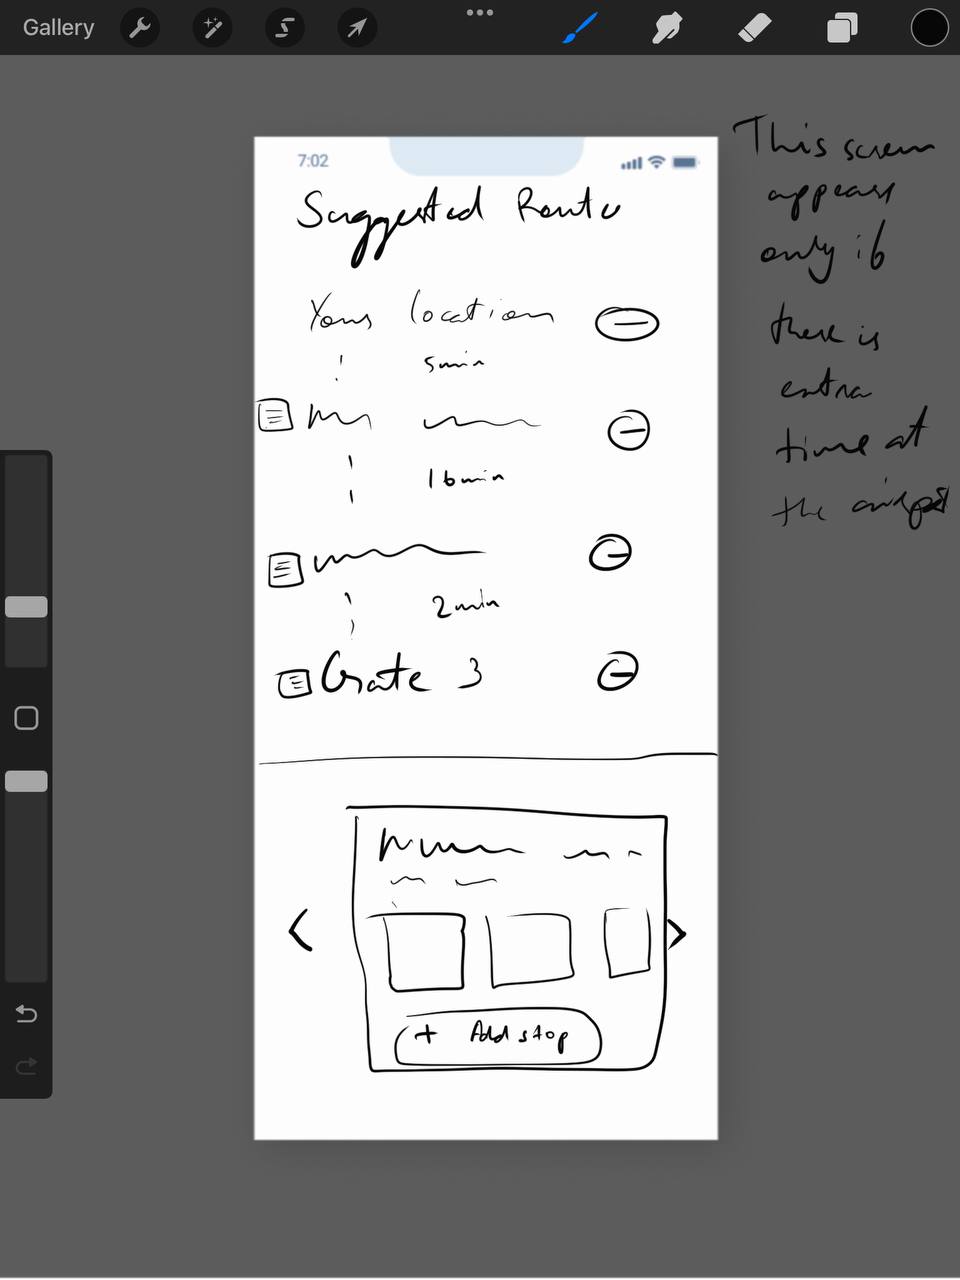 Gallery
7:02
Suggested Route
Your location
5min
16min
2min
Gate 3
+ Add stop
This screen
appears
only if
there is
extra
time at
the airport